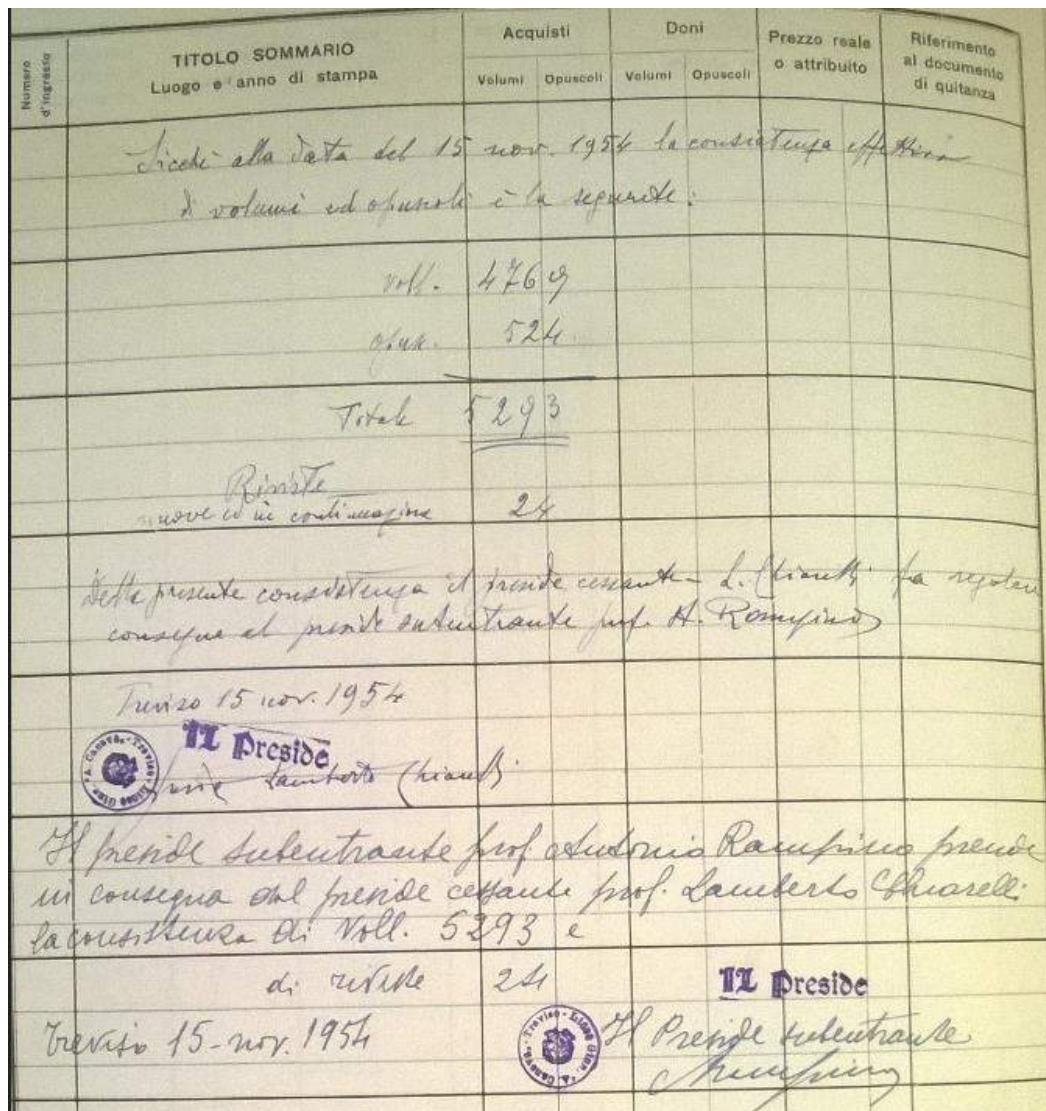 Numero d'ingresso
TITOLO SOMMARIO
Luogo e anno di stampa
Acquisti
Volumi Opuscoli
Doni
Volumi Opuscoli
Prezzo reale
o attribuito
Riferimento
al documento
di quitanza
Sicchè alla data del 15 nov. 1954 la consistenza effettiva
di volumi ed opuscoli è la seguente:
voll. 4769
opusc. 524
Totale 5293
Riviste
nuove ed in continuazione 24
Della presente consistenza il preside cessante L. Chiarelli fa regolare
consegna al preside subentrante prof. A. Rampino
Treviso 15 nov. 1954
Il Preside
Lamberto Chiarelli
"A. Canova" - Treviso - Liceo Ginn.
Il preside subentrante prof. Antonio Rampino prende
in consegna dal preside cessante prof. Lamberto Chiarelli
la consistenza di Voll. 5293 e
di riviste 24
Il Preside
Treviso 15-nov. 1954
Il Preside subentrante
ARampino
"A. Canova" - Treviso - Liceo Ginn.